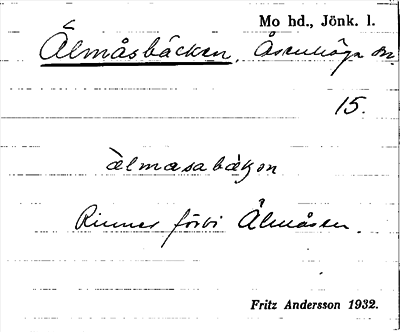 Mo hd., Jönk. l.
Älmåsbäcken, Åsenhöga sn.
15.
àlmasabàkon
Rinner förbi Älmåsen.
Fritz Andersson 1932.